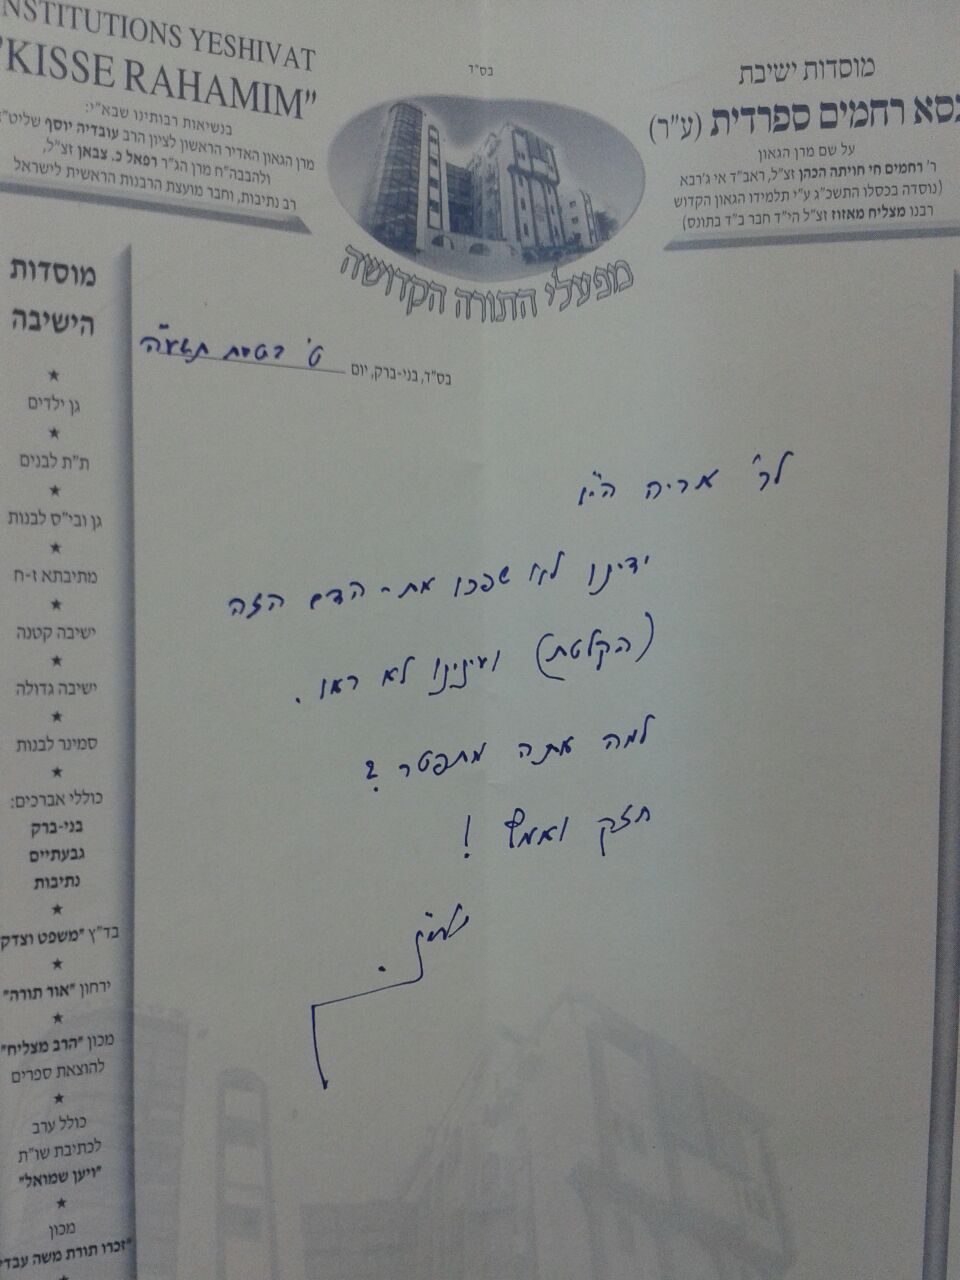 INSTITUTIONS YESHIVAT
"KISSE RAHAMIM"
בנשיאות רבותינו שבא"י:
מרן הגאון האדיר הראשון לציון הרב עובדיה יוסף שליט"א
ולהבבה"ח מרן הג"ר רפאל כ. צבאן זצ"ל,
רב נתיבות, וחבר מועצת הרבנות הראשית לישראל
בס"ד
מוסדות ישיבת
כסא רחמים ספרדית (ע"ר)
על שם מרן הגאון
ר' רחמים חי חויתה הכהן זצ"ל, ראב"ד אי ג'רבא
(נוסדה בכסלו התשכ"ג ע"י תלמידו הגאון הקדוש
רבנו מצליח מאזוז זצ"ל הי"ד חבר ב"ד בתונס)
מפעלי התורה הקדושה
בס"ד, בני-ברק, יום ט' בטבת תשע"ה
לר' אריה הי"ו
ידינו לא שפכו את-הדם הזה
(הקלטת) ועינינו לא ראו.
למה אתה מתפטר?
חזק ואמץ!
מוסדות
הישיבה
★
גן ילדים
★
ת"ת לבנים
★
גן ובי"ס לבנות
★
מתיבתא ז-ח
★
ישיבה קטנה
★
ישיבה גדולה
★
סמינר לבנות
★
כוללי אברכים:
בני-ברק
גבעתיים
נתיבות
★
בד"ץ "משפט וצדק"
★
ירחון "אור תורה"
★
מכון "הרב מצליח"
להוצאת ספרים
★
כולל ערב
לכתיבת שו"ת
"ויען שמואל"
★
מכון
"זכרו תורת משה עבדי"
★